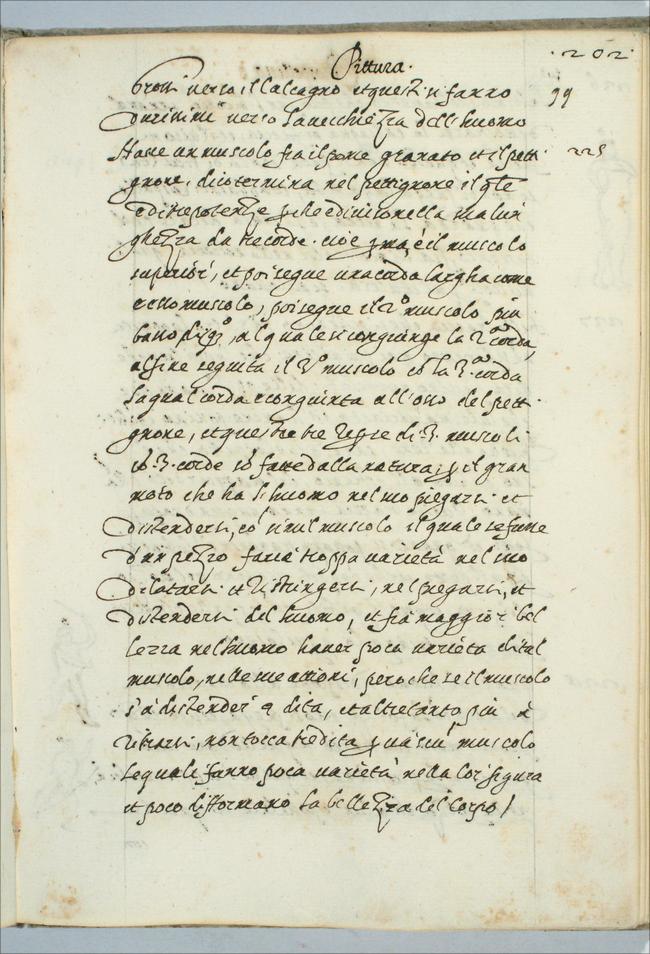 .202.
Pittura.
bretti verso il calcagno et questi si fanno
99
durissimi verso la vecchiezza dell huomo
Hasse un muscolo fra il pome granato et il petti
225
gnone, dico termina nel pettignone il qle
è di tre potenze, che è diviso nella sua lun
ghezza da tre corde. cioè, è il muscolo
superiore, et poi segue una corda largha come
esso muscolo, poi segue il 2º muscolo piu
basso di qº, al quale si congiunge la 2ª corda,
al fine seguita il 3º muscolo co la 3ª corda
la qual corda è congiunta all'osso del petti
gnone, et queste tre di 3. muscoli
co 3. corde so fatte dalla natura, il gran
moto che ha l'huomo nel suo piegarsi et
distendersi, co simil muscolo il quale se fusse
d'un pezzo faria troppa varietà nel suo
dilatarsi et ristringersi, nel piegarsi, et
distendersi del huomo, et fia maggior bel
lezza nel huomo haver poca varietà di tal
muscolo, nelle sue attioni, però che se il muscolo
s'à distender 9 dita, et altretanto piu à
ritirarsi, non tocca 3 dita muscolo
le quali fanno poca varietà nella lor figura
et poco difformano la bellezza del corpo /